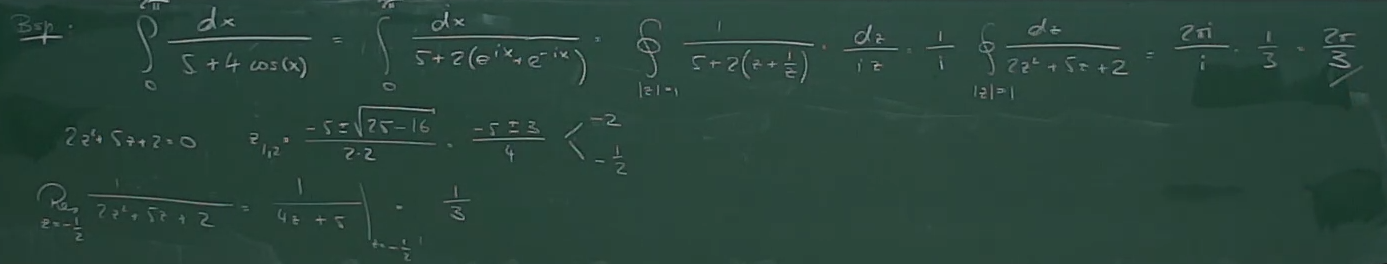 Bsp: ∫₀^{2π} dx / (5 + 4 cos(x)) = ∫₀^{2π} dx / (5 + 2(e^{ix} + e^{-ix})) = ∮_{|z|=1} 1 / (5 + 2(z + 1/z)) · dz / (iz) = 1/i ∮_{|z|=1} dz / (2z² + 5z + 2) = 2πi/i · 1/3 = 2π/3
2z² + 5z + 2 = 0   z_{1,2} = (-5 ± √(25-16)) / (2·2) = (-5 ± 3) / 4 < -2, -1/2
Res_{z=-1/2} 1 / (2z² + 5z + 2) = 1 / (4z + 5) |_{z=-1/2} = 1/3